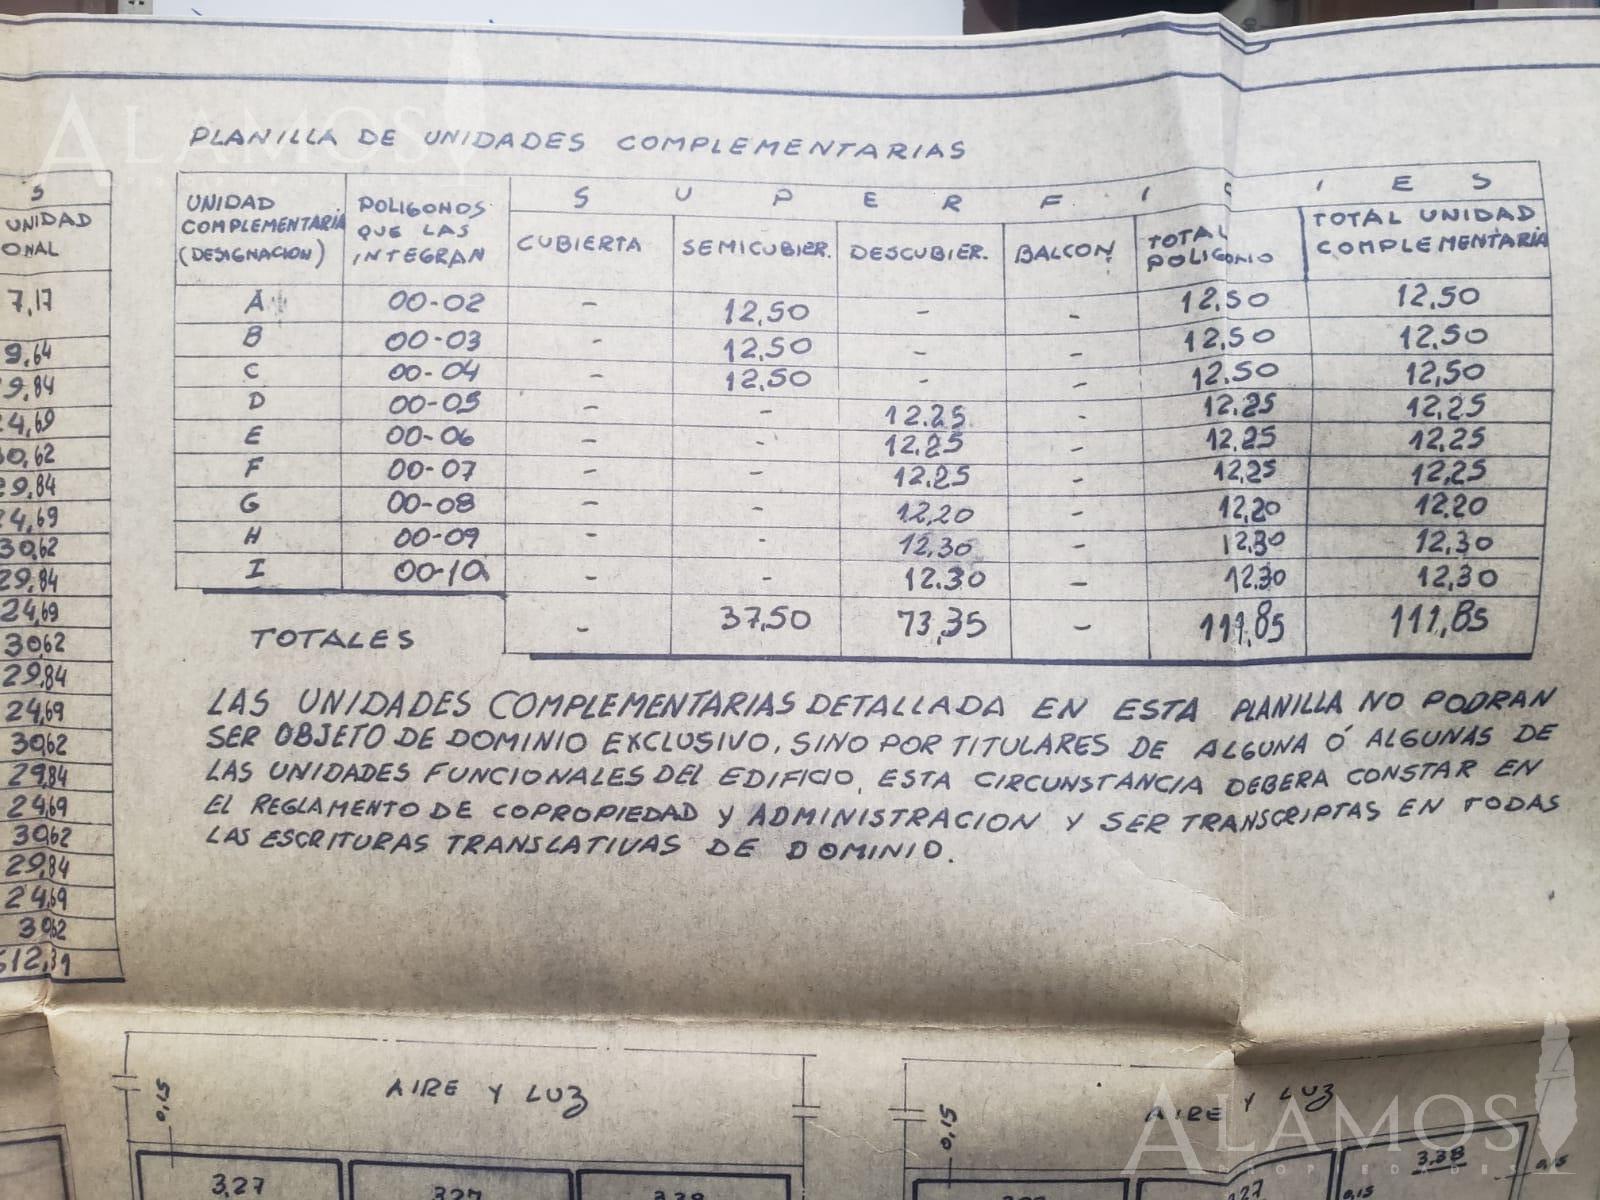 ALAMOS
PLANILLA DE UNIDADES COMPLEMENTARIAS
S
UNIDAD
ONAL
7,17
9.64
9,84
24,69
30,62
29,84
24,69
30,62
29,84
24,69
30,62
29,84
24,69
30,62
29,84
24,69
30,62
29,84
24,69
30,62
612,31
UNIDAD COMPLEMENTARIA (DESIGNACION) POLIGONOS QUE LAS INTEGRAN SUPERFICIES
CUBIERTA SEMICUBIER. DESCUBIER. BALCON TOTAL POLIGONO TOTAL UNIDAD COMPLEMENTARIA
A 00-02 - 12,50 - - 12,50 12,50
B 00-03 - 12,50 - - 12,50 12,50
C 00-04 - 12,50 - - 12,50 12,50
D 00-05 - - 12.25 - 12,25 12,25
E 00-06 - - 12.25 - 12,25 12,25
F 00-07 - - 12.25 - 12,25 12,25
G 00-08 - - 12,20 - 12,20 12,20
H 00-09 - - 12,30 - 12,30 12,30
I 00-10 - - 12.30 - 12,30 12,30
TOTALES - 37,50 73,35 - 111,85 111,85
LAS UNIDADES COMPLEMENTARIAS DETALLADA EN ESTA PLANILLA NO PODRAN
SER OBJETO DE DOMINIO EXCLUSIVO, SINO POR TITULARES DE ALGUNA Ó ALGUNAS DE
LAS UNIDADES FUNCIONALES DEL EDIFICIO, ESTA CIRCUNSTANCIA DEBERA CONSTAR EN
EL REGLAMENTO DE COPROPIEDAD Y ADMINISTRACION Y SER TRANSCRIPTAS EN TODAS
LAS ESCRITURAS TRANSLATIVAS DE DOMINIO.
0,15
AIRE Y LUZ
0,15
AIRE Y LUZ
ALAMOS
PROPIEDADES
3,27
3,27
3,38
3,27
3,38
0,15
0,15